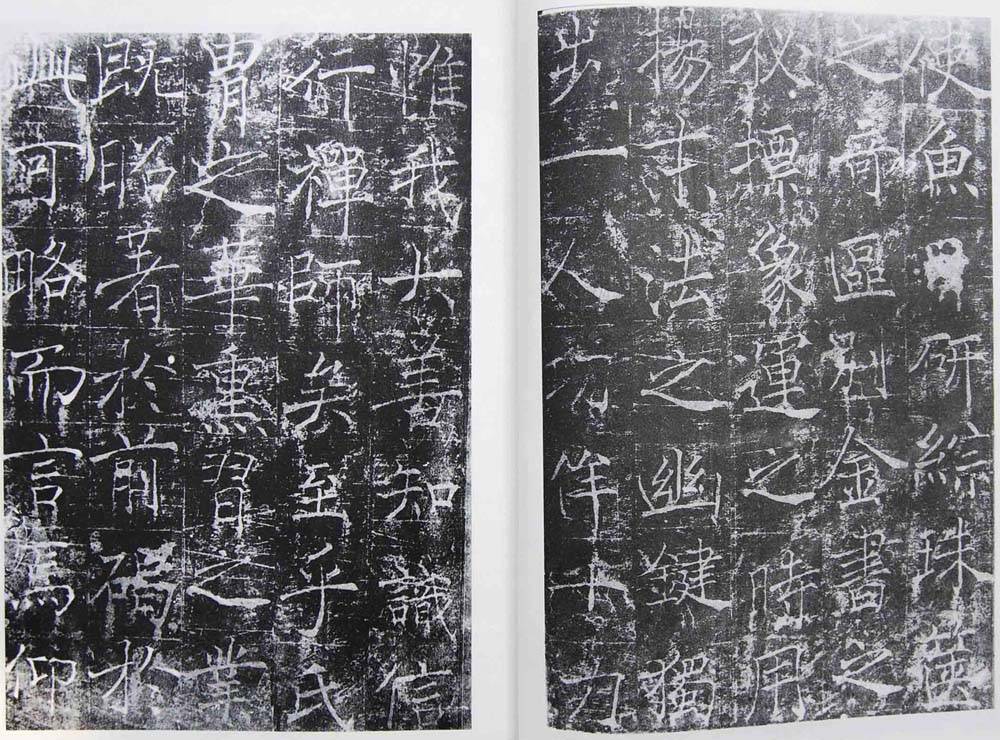 使魚研綜珠
之奇區別金書之
秘標象運之時用
揚十法之幽鍵獨
步一人侔十力
惟我大善知識信
行禪師矣至乎氏
胄之華熏習之業
既昭著於前碣於
可略而言焉仰